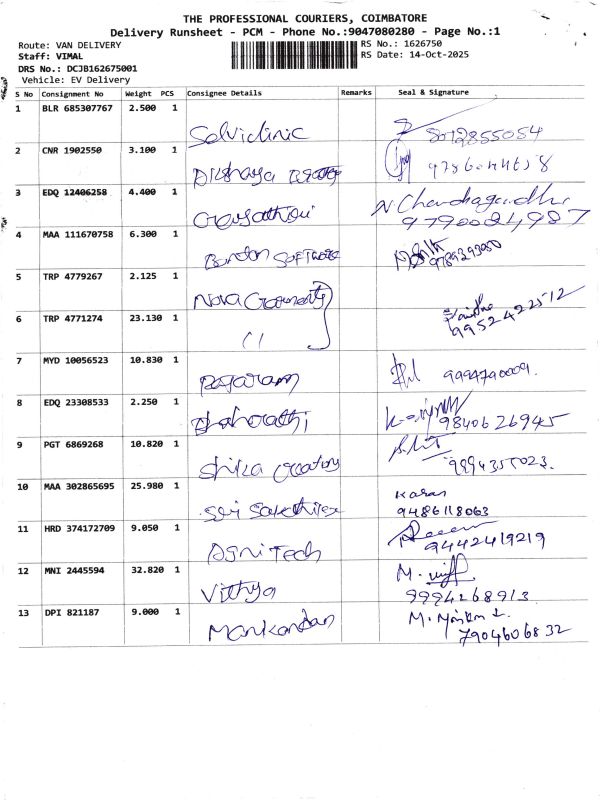 THE PROFESSIONAL COURIERS, COIMBATORE
Delivery Runsheet - PCM - Phone No.:9047080280 - Page No.:1
Route: VAN DELIVERY RS No.: 1626750
Staff: VIMAL RS Date: 14-Oct-2025
DRS No.: DCJB162675001
Vehicle: EV Delivery
S No Consignment No Weight PCS Consignee Details Remarks Seal & Signature
1 BLR 685307767 2.500 1
Selviclinic 8012855054
2 CNR 1902550 3.100 1
3 EDQ 12406258 4.400 1
N. Chandragandhi
9790024987
4 MAA 111670758 6.300 1
Software
5 TRP 4779267 2.125 1
Nova Garments
9952422512
6 TRP 4771274 23.130 1
11
7 MYD 10056523 10.830 1
Rajaram 9994790009.
8 EDQ 23308533 2.250 1
9840626945
9 PGT 6869268 10.820 1
Shika Creations 9994355023.
10 MAA 302865695 25.980 1
Karan
Sri 9486118063
11 HRD 374172709 9.050 1
Agni Tech 9442419219
12 MNI 2445594 32.820 1
M.
Vithya 9994268913
13 DPI 821187 9.000 1
M.
Manikandan 7904606832